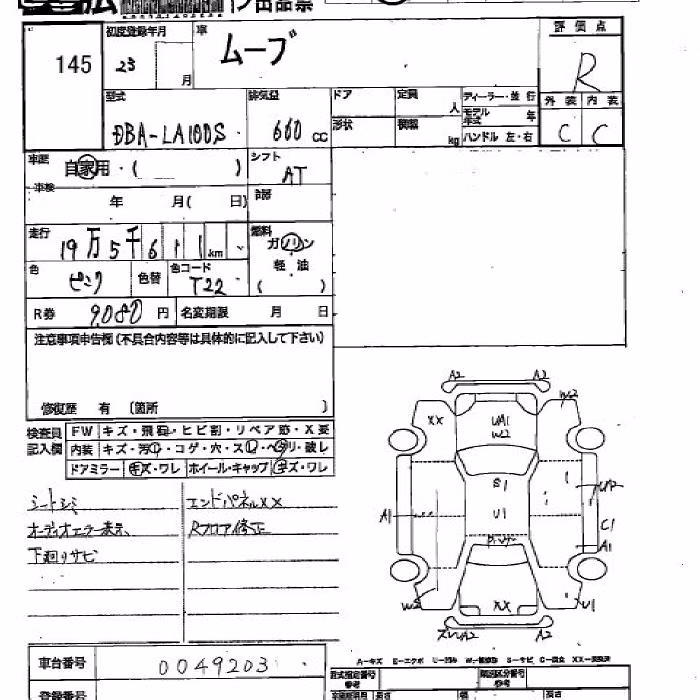 出品票
145
初度登録年月
23
月
車
ムーブ
評価点
R
外装 内装
C C
型式
DBA-LA100S
排気量
660 cc
ドア
形状
定員
人
積載
kg
ディーラー・並行
モデル年式
年
ハンドル 左・右
車歴
自家用・( )
シフト
AT
車検
年 月( 日)
走行
19万5千611km
燃料
ガソリン
軽・油
( )
色
ピンク
色替
色コード
T22
R券
9,080 円
名変期限 月 日
注意事項申告欄(不具合内容等は具体的に記入して下さい)
修復歴 有 〔箇所 〕
検査員記入欄
FW キズ・飛石・ヒビ割・リペア跡・X要
内装
ドアミラー キズ・ワレ ホイール・キャップ キズ・ワレ
シートシミ
オーディオエラー表示
下廻りサビ
エンドパネルXX
Rフロア修正
A2 A2
XX
W2
UA1
W2
S1
U1
A1
U2
C1
A1
W2
U1
XX
A2 A2
車台番号
0049203
登録番号
A-キズ E-エクボ
型式指定番号
参考
類別区分番号
参考